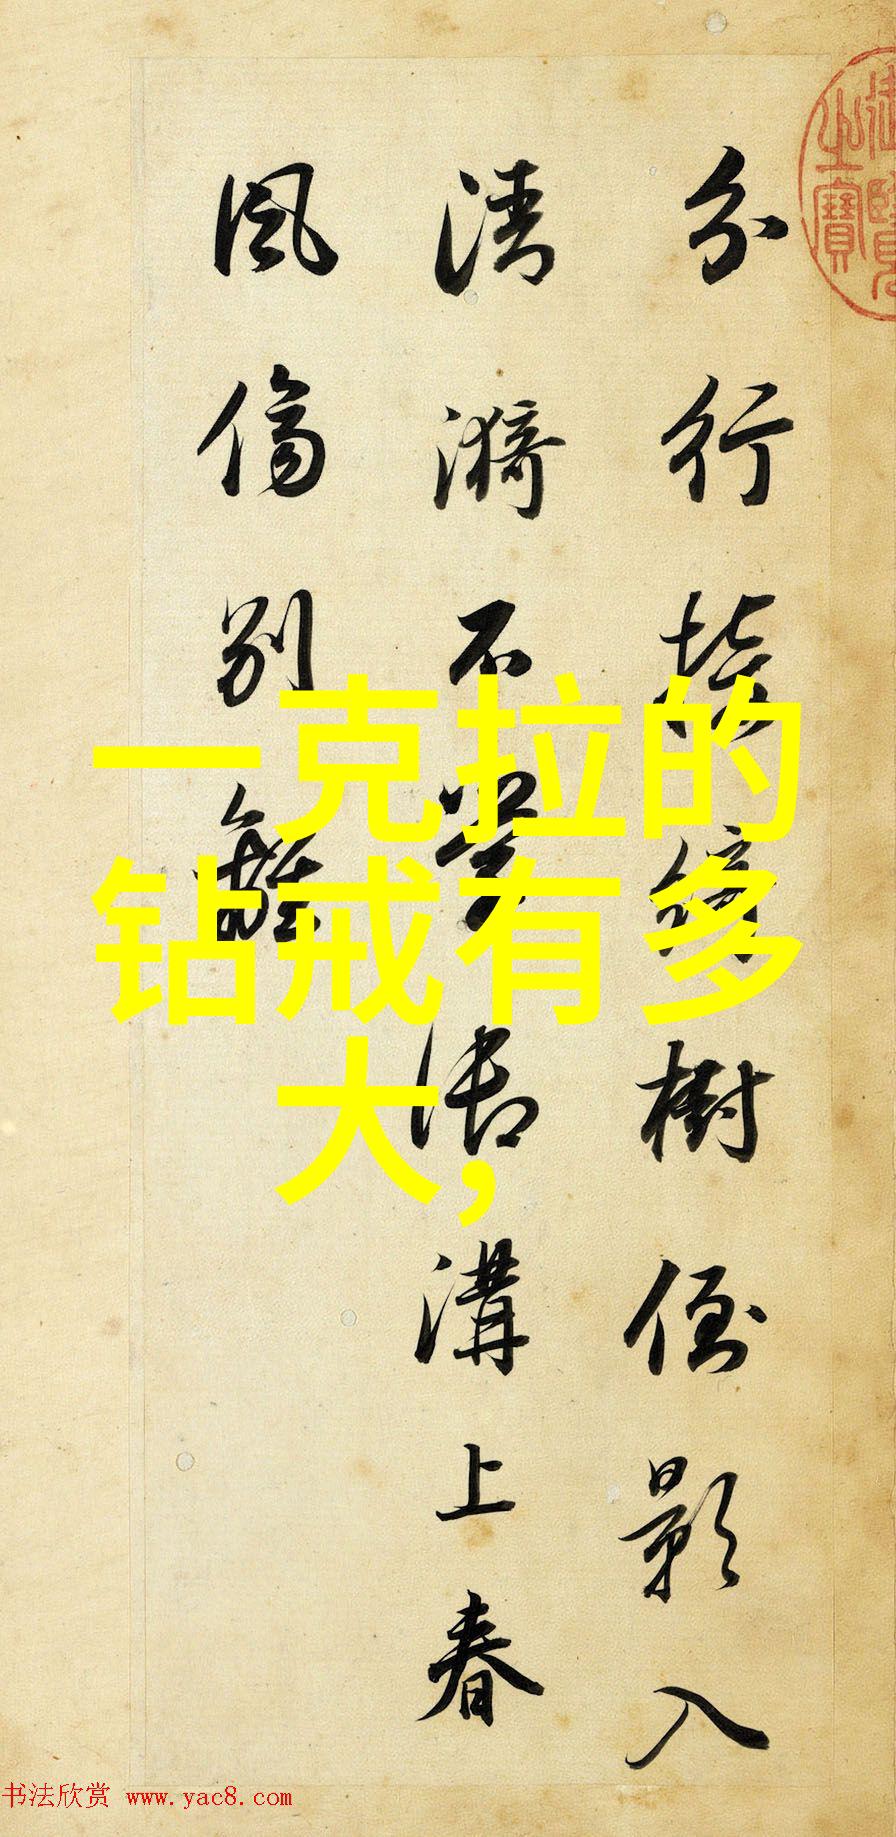 分行接綺樹倒影入
清漪不學御溝上春
風傷別離
之寶
一克拉的
钻戒有多
大,
书法欣赏 www.yac8.com